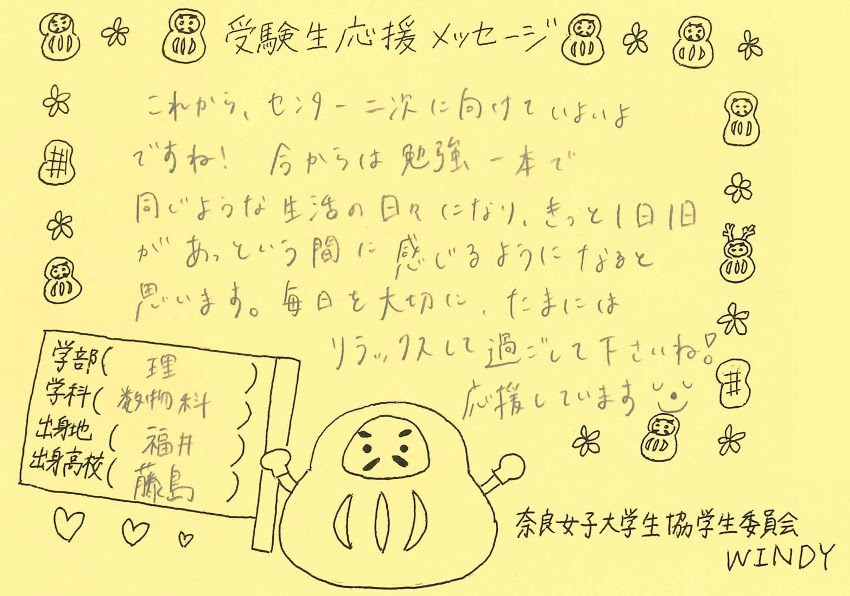 受験生応援メッセージ
これから、センター二次に向けていよいよ
ですね! 今からは勉強一本で
同じような生活の日々になり、きっと1日1日
があっという間に感じるようになると
思います。毎日を大切に、たまには
リラックスして過ごして下さいね!
応援しています
学部(理)
学科(数物科)
出身地(福井)
出身高校(藤島)
奈良女子大学生協学生委員会
WINDY